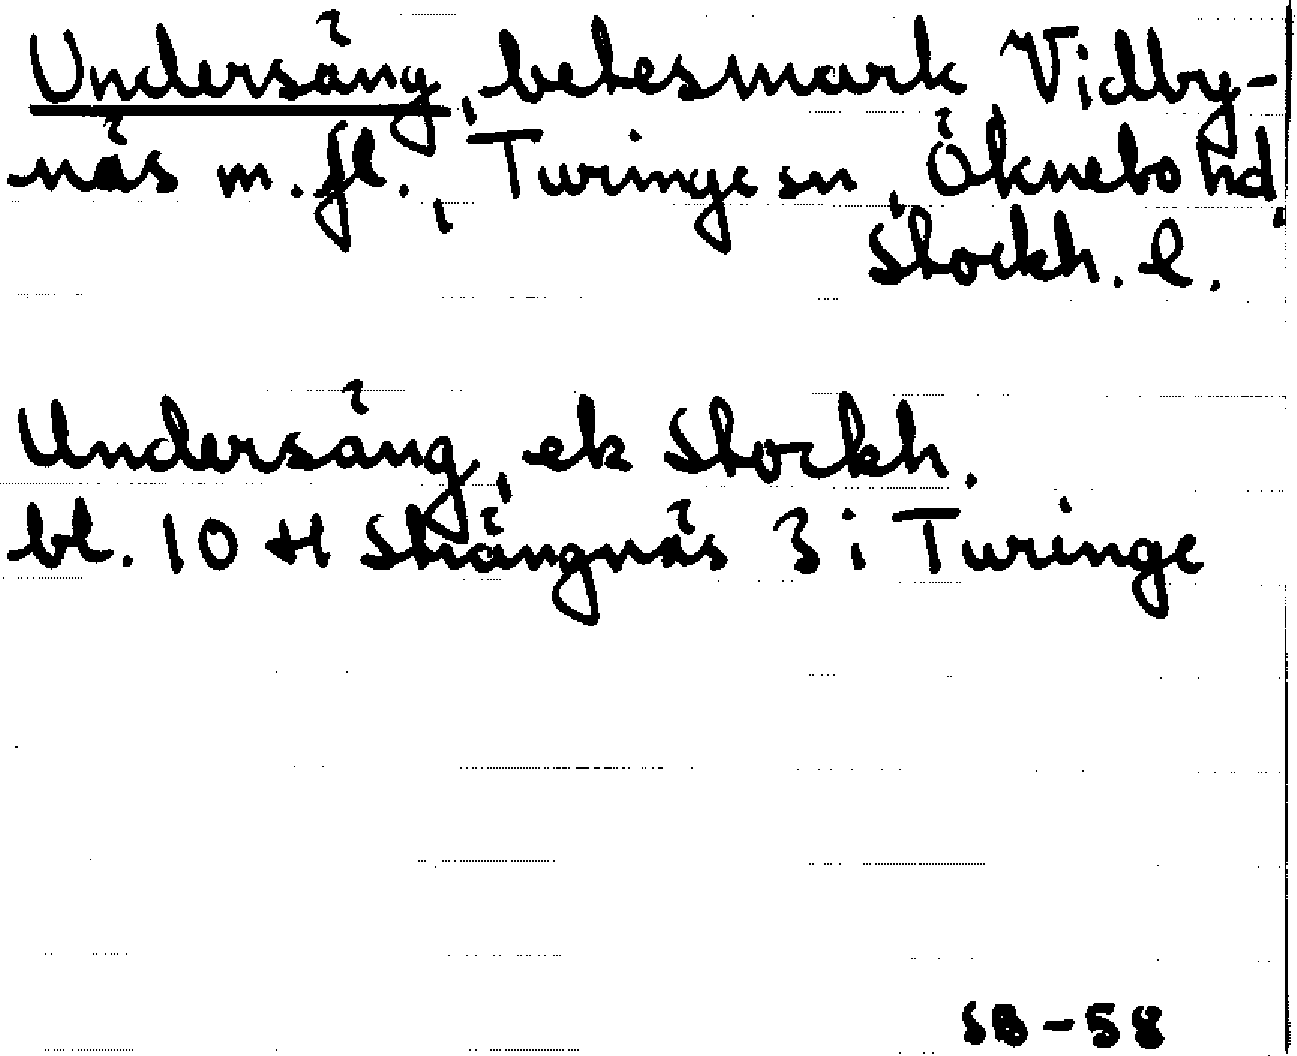 Undersäng, betesmark Vidby-
näs m.fl., Turinge sn, Öknebo hd,
Stockh. l.
Undersäng, ek Stockh.
bl. 10 H Strängnäs 3 i Turinge
SB-58